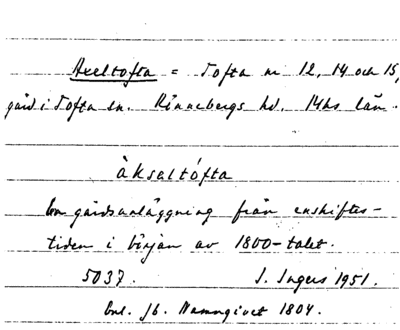 Axeltofta = Tofta nr 12, 14 och 15,
gård i Tofta sn. Rönnebergs hd. Mhs län.
àksaltófta
En gårdsanläggning från enskiftes-
tiden i början av 1800-talet.
5037. I. Ingers 1951.
Enl. Jb. Namngivet 1804.